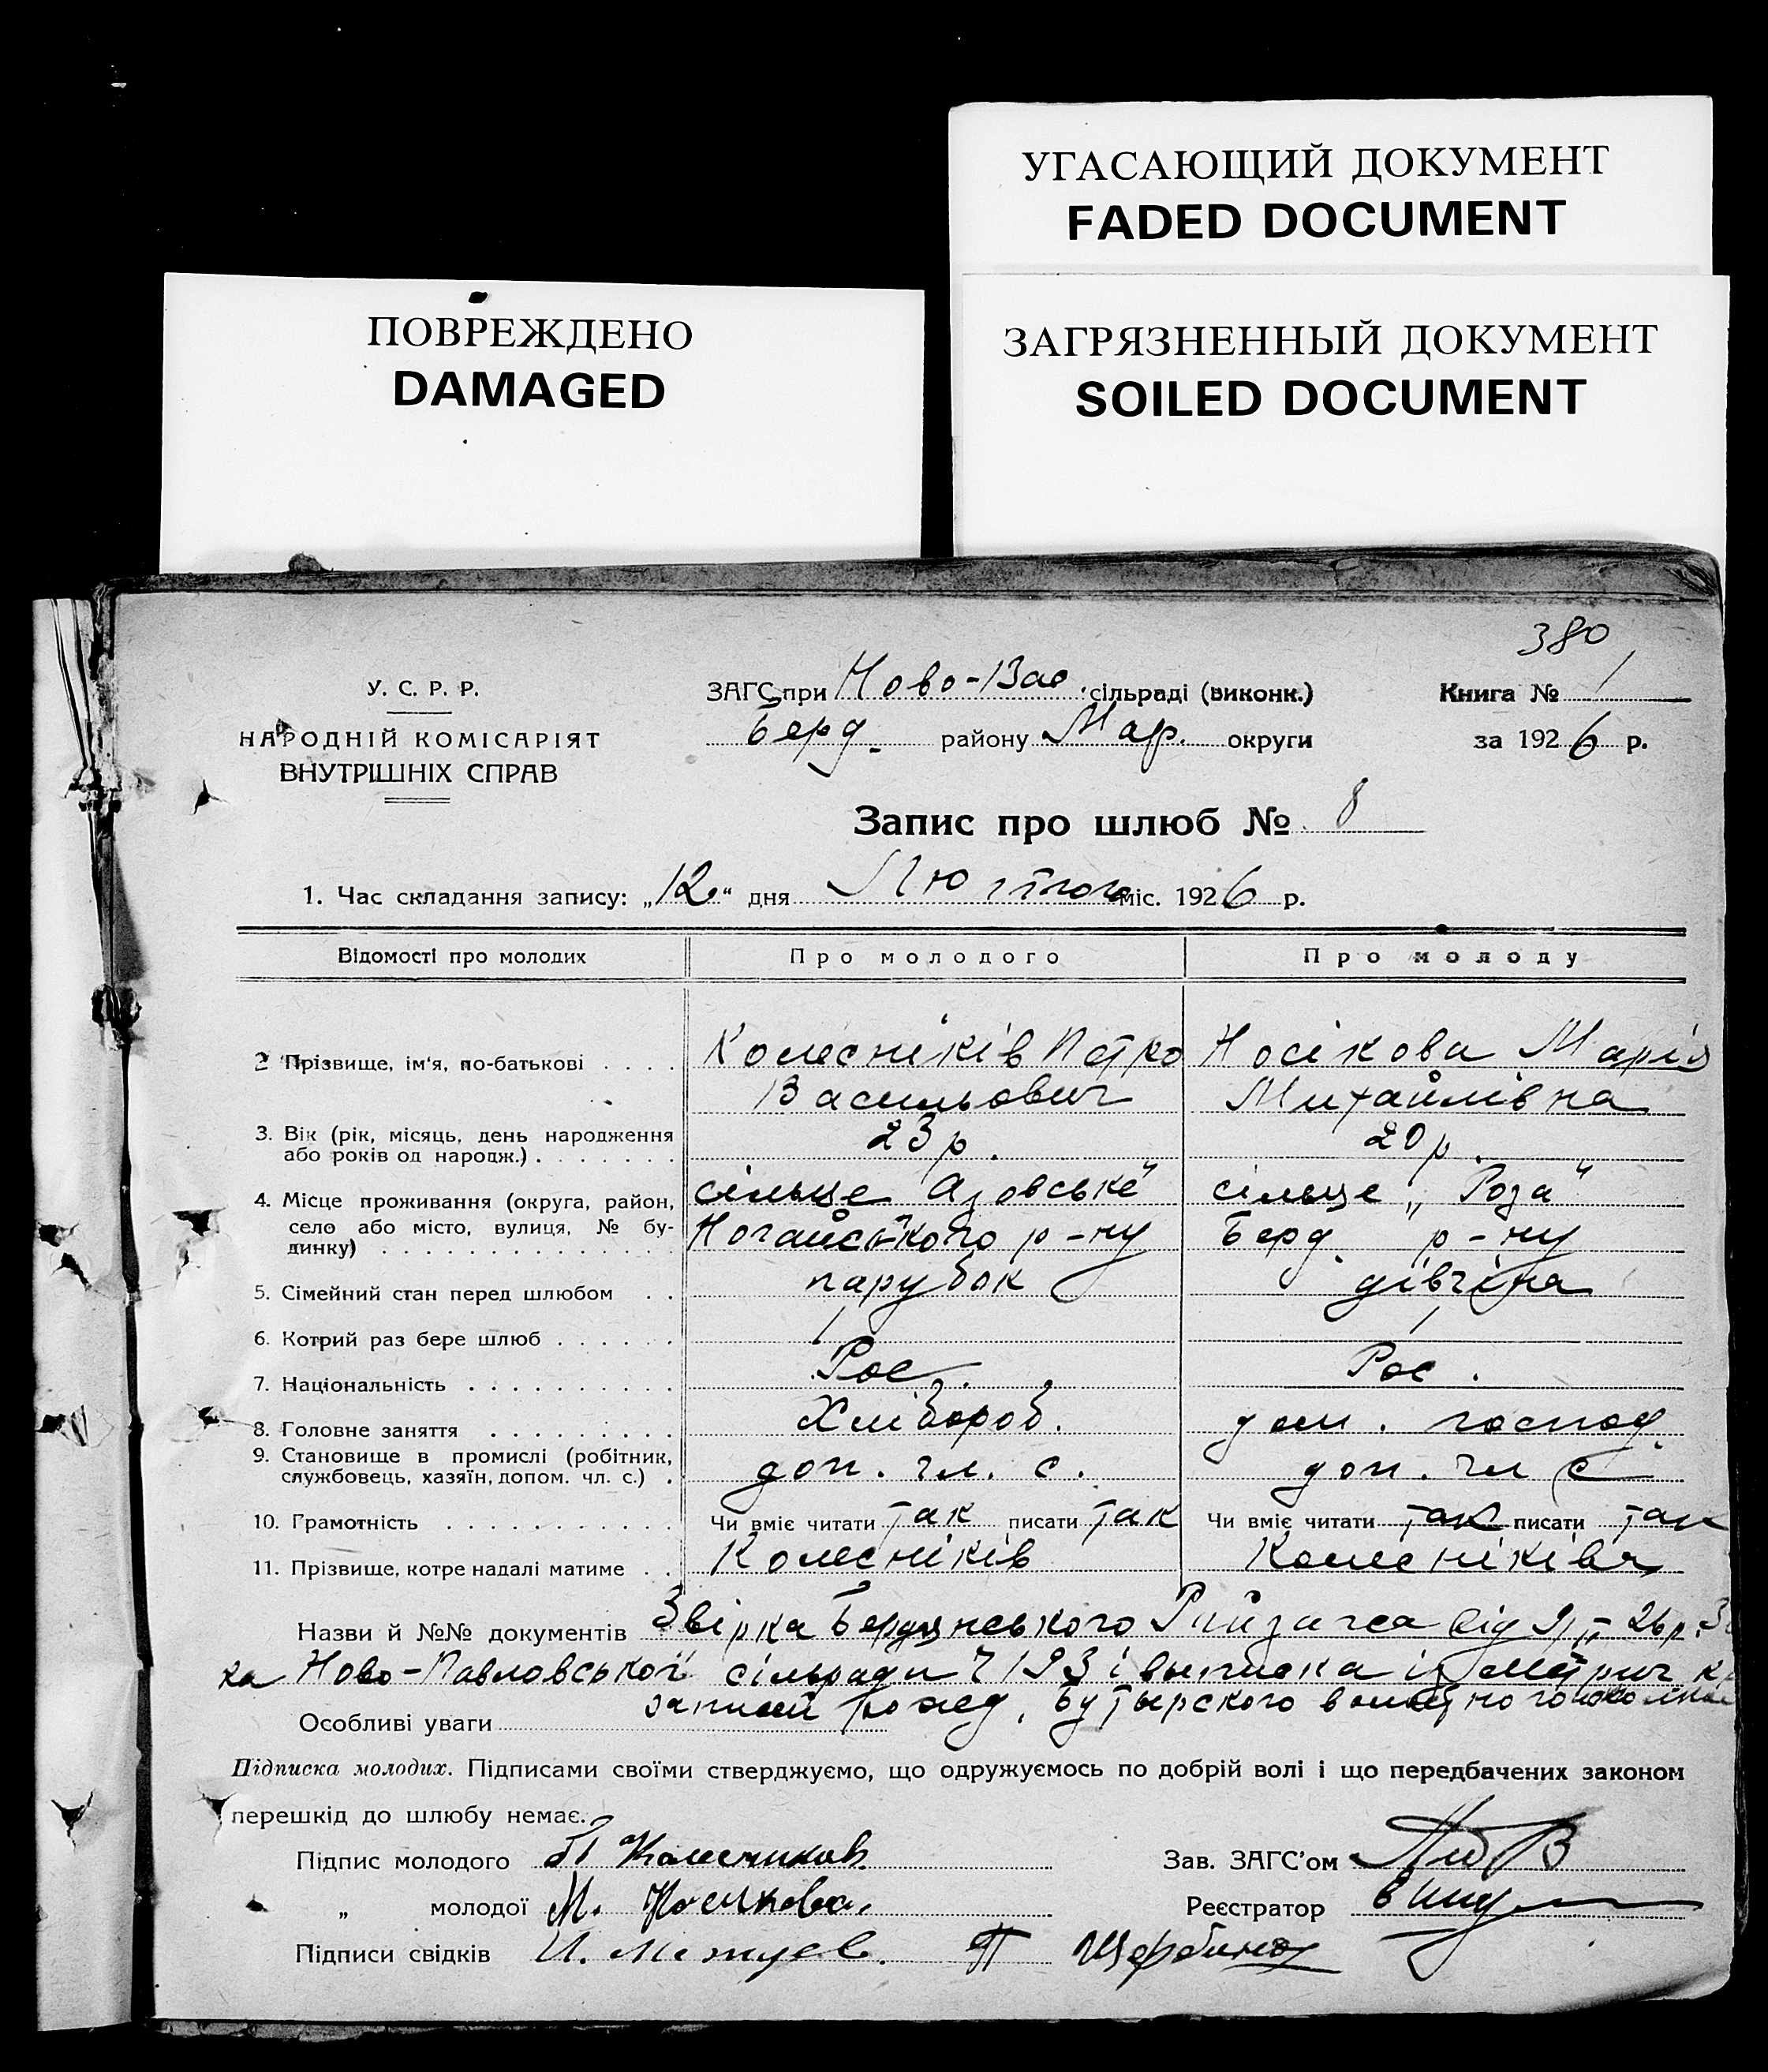 УГАСАЮЩИЙ ДОКУМЕНТ
FADED DOCUMENT
ПОВРЕЖДЕНО
DAMAGED
ЗАГРЯЗНЕННЫЙ ДОКУМЕНТ
SOILED DOCUMENT
380
У. С. Р. Р.
НАРОДНІЙ КОМІСАРІЯТ
ВНУТРІШНІХ СПРАВ
ЗАГС при Ново-Вас. сільраді (виконк.)
Берд. району Мар. округи
Книга № 1
за 1926 р.
Запис про шлюб № 8
1. Час складання запису: „12“ дня Лютого міс. 1926 р.
Відомості про молодих Про молодого Про молоду
2. Прізвище, ім'я, по-батькові Колесніків Петро Васильович Носікова Марія Михайлівна
3. Вік (рік, місяць, день народження
або років од народж.) 23 р. 20 р.
4. Місце проживання (округа, район,
село або місто, вулиця, № бу-
динку) сільце Азовське" Ногайського р-ну сільце „Роза" Берд. р-ну
5. Сімейний стан перед шлюбом парубок дівчіна
6. Котрий раз бере шлюб 1 1
7. Національність Рос. Рос.
8. Головне заняття Хлібороб. дом. господ.
9. Становище в промислі (робітник,
службовець, хазяїн, допом. чл. с.) доп. чл. с. доп. чл с
10. Грамотність Чи вміє читати так писати так Чи вміє читати так писати так
11. Прізвище, котре надалі матиме Колесніків Колесніківа
Назви й №№ документів Звірка Бердянського Райзагса від 9/II 26 р.
ка Ново-Павловської сільради Ч 193 і выписка із метрич
записи рожд. Бутырского волостного
Особливі уваги
Підписка молодих. Підписами своїми стверджуємо, що одружуємось по добрій волі і що передбачених законом
перешкід до шлюбу немає.
Підпис молодого П Колесников Зав. ЗАГС'ом
„ молодої М. Носикова. Реєстратор
Підписи свідків И. П Щербина